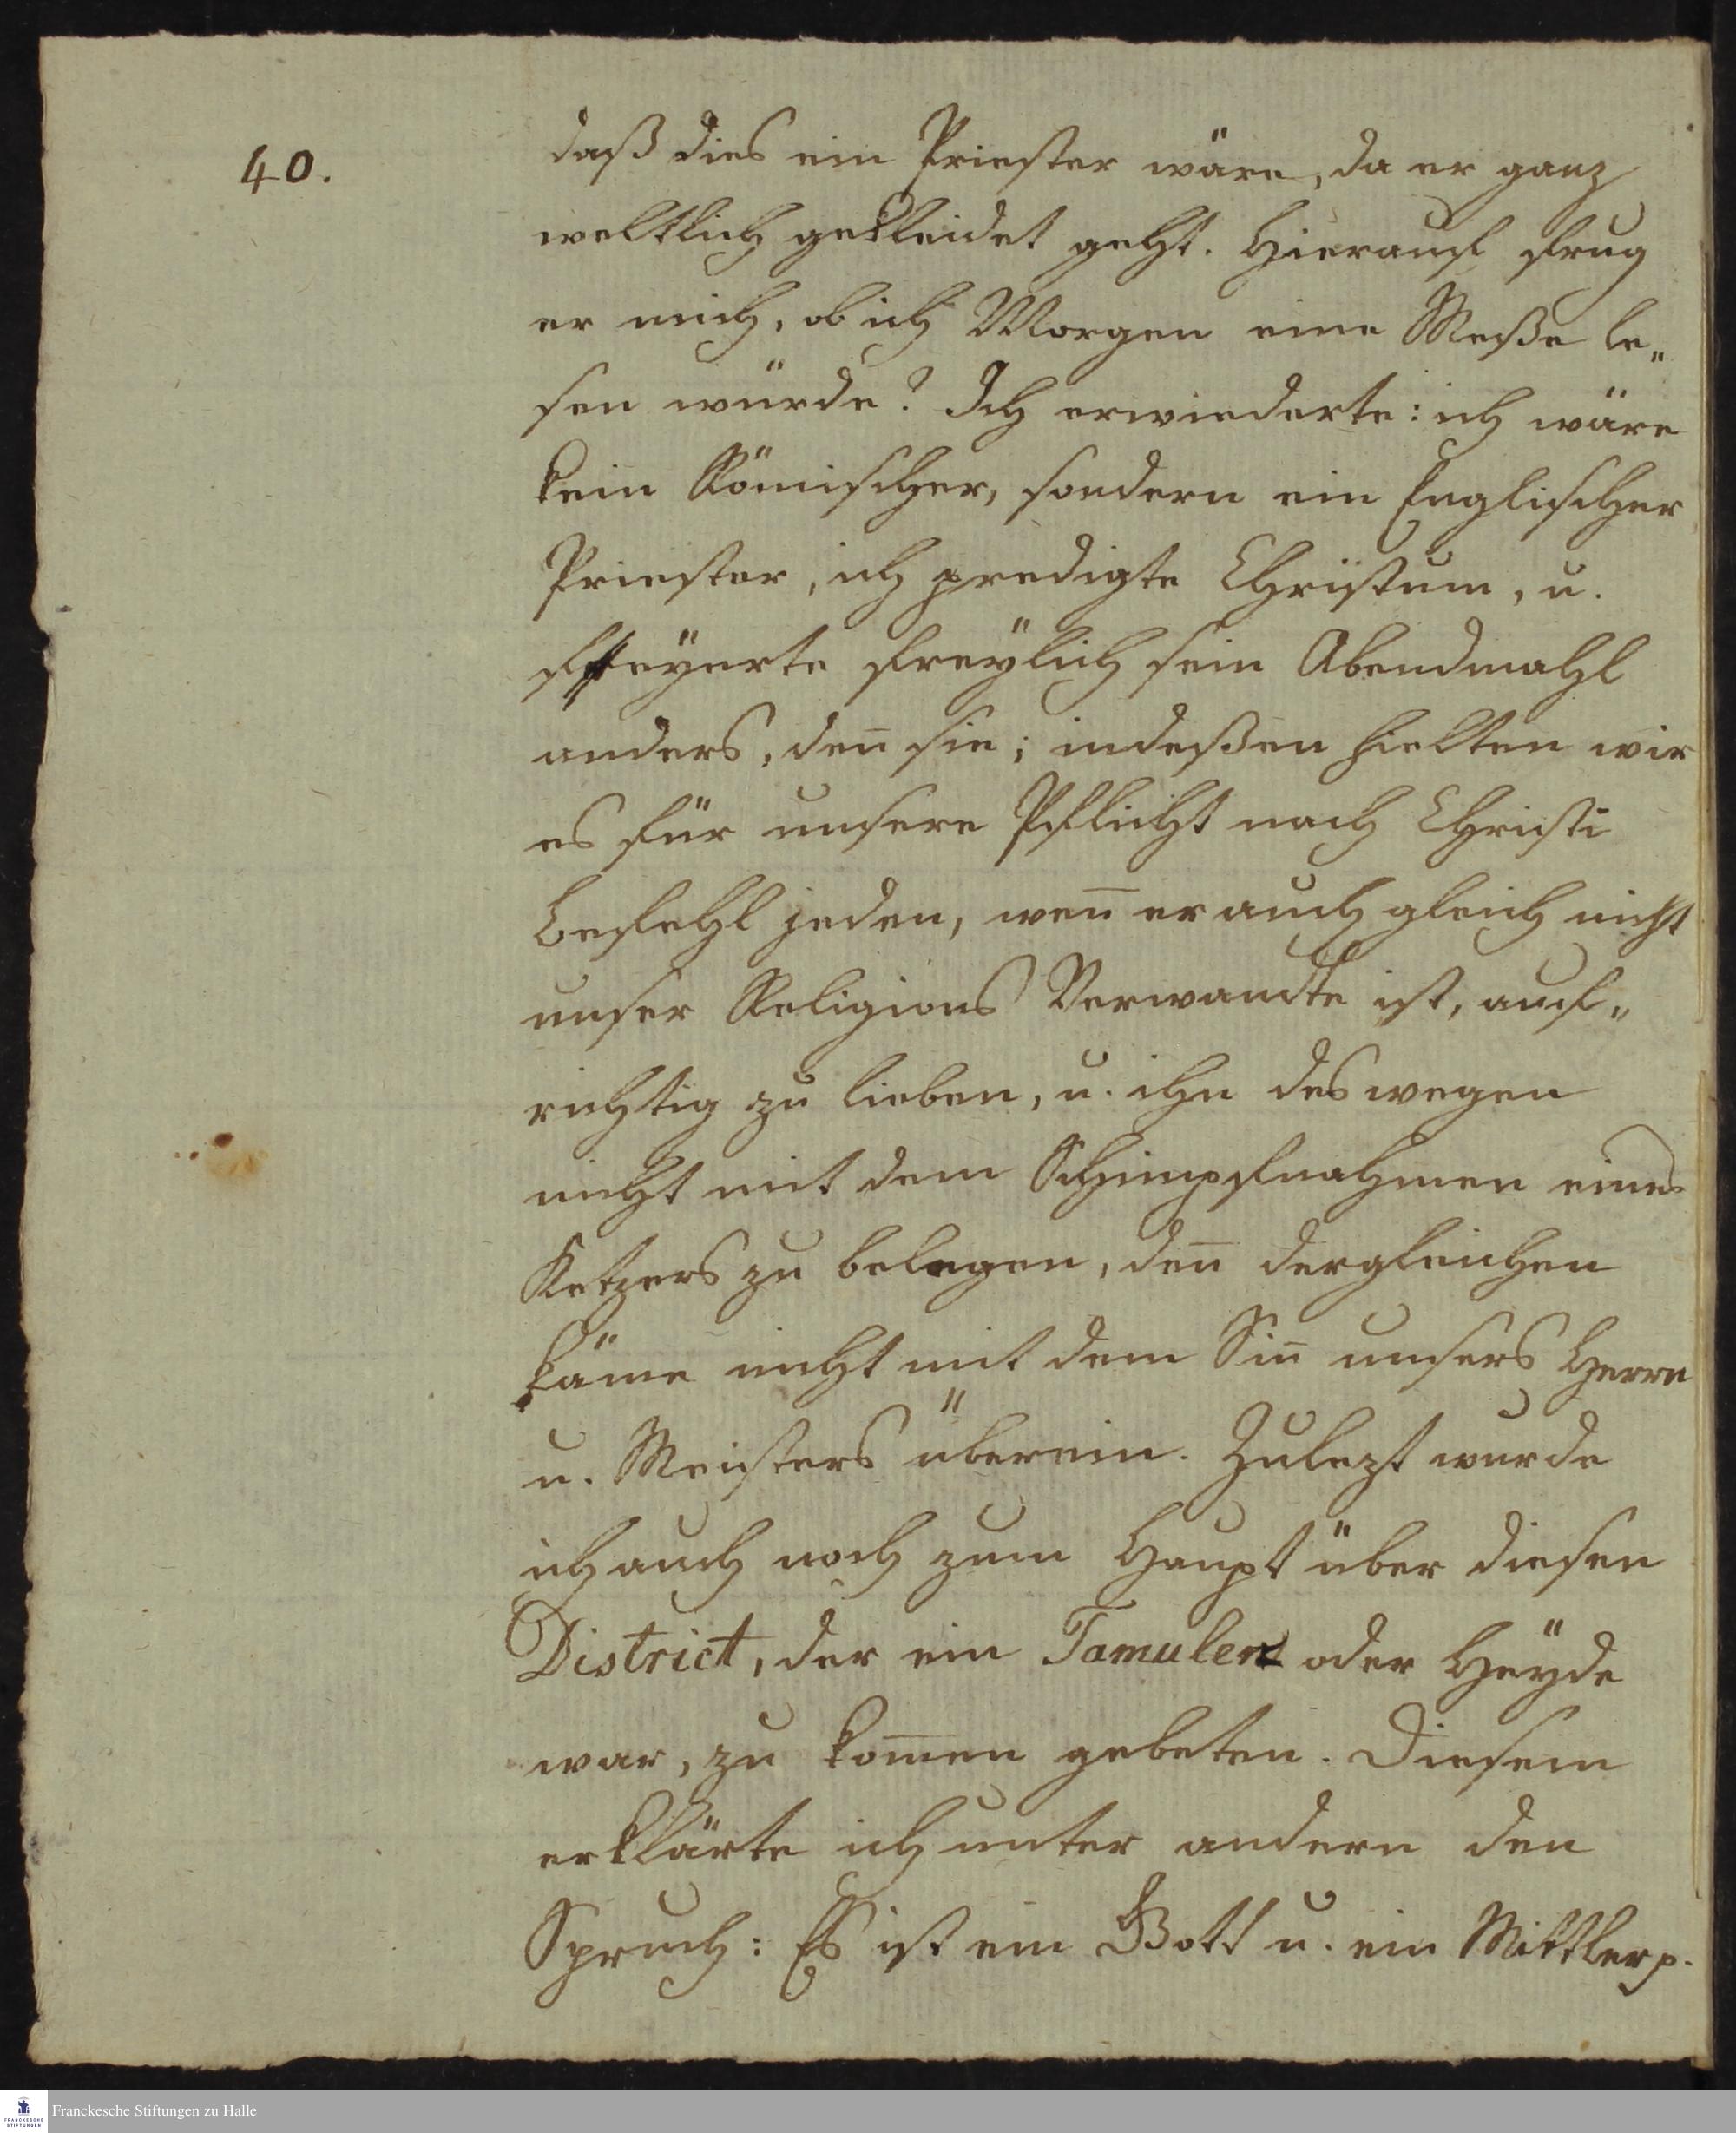 40.
daß dies ein Priester wäre, da er ganz
weltlich gekleidet geht. Hierauf frug
er mich, ob ich Morgen eine Meße le„
sen würde? Ich erwiederte: ich wäre
kein Römischer, sondern ein Englischer
Priester, ich predigte Christum, u.
feyerte freÿlich sein Abendmahl
anders, den̄ sie; indeßen hielten wir
es für unsere Pflicht nach Christi
Befehl jeden, wen̄ er auch gleich nicht
unser Religions Verwandte ist, auf„
richtig zu lieben, u. ihn deswegen
nicht mit dem Schimpfnahmen eines
Ketzers zu belegen, den̄ dergleichen
käme nicht mit dem Sin̄ unsers Herrn
u. Meisters überein. Zulezt wurde
ich auch noch zum Haupt über diesen
District, der ein Tamuler oder Heÿde
war, zu kom̄en gebeten. Diesem
erklärte ich unter andern den
Spruch: Es ist ein Gott u. ein Mittler p.
Franckesche Stiftungen zu Halle
FRANCKESCHE
STIFTUNGEN